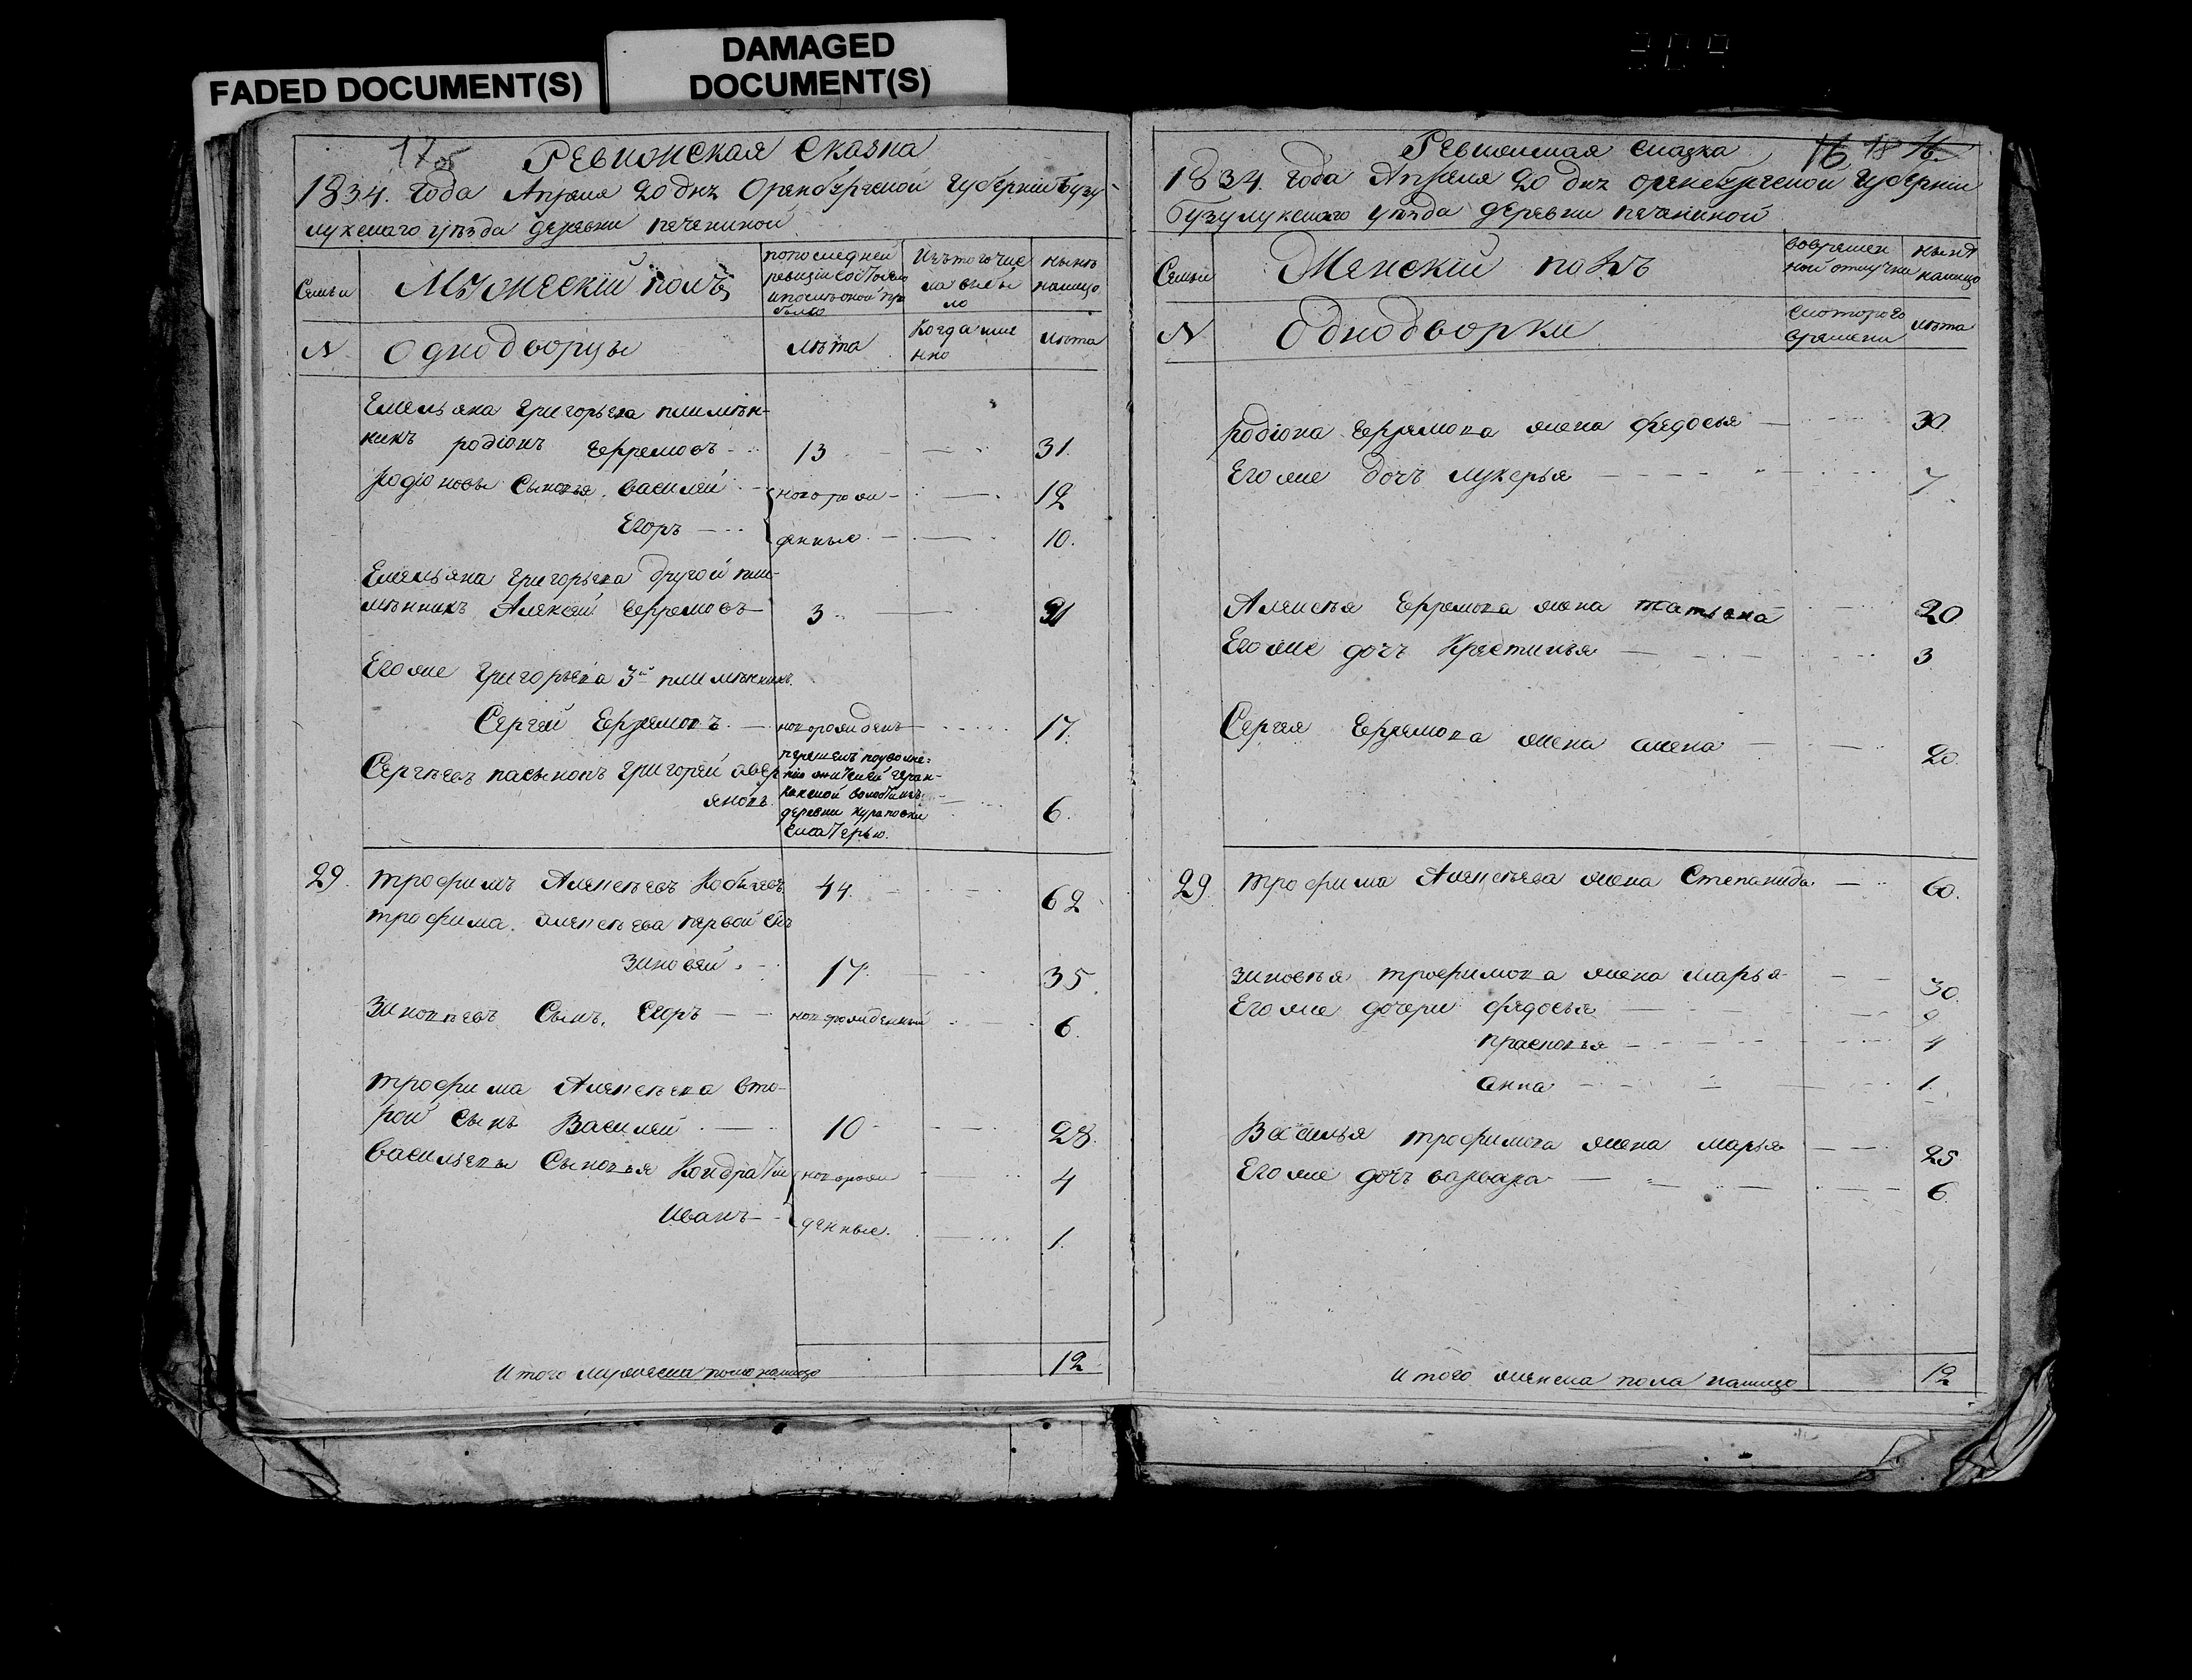 FADED DOCUMENT(S)
DAMAGED
DOCUMENT(S)
Ревизская Сказка
1834. года Апреля 20 дня Оренбургской губернии Бузу-
лукскаго уезда деревни печениной
Семьи
Мужеский полъ
по последней
ревизии состояло
и после оной при
было
Изъ того чис
ла выбы
ло
ныне
налицо
N
Однодворцы
лѣта
Когда име
нно
лѣта
Емельяна григорьева племян-
никъ родионъ Ефремовъ 13 31.
Родионовы Сыновья. василей новорож- 12
Егоръ денные 10.
Емельяна григорьева другой пле-
мянникъ Алексей Ефремовъ 3 21
Его же григорьева 3й племянникъ.
Сергей Ефремовъ новорожденъ 17.
Сергеевъ пасынокъ григорей авер
яновъ 6.
деревни
с матерью.
29. трофимъ Алексеевъ 44. 62
трофима алексеева первой сынъ
зиновей 17. 35.
зиновьевъ Сынъ. Егоръ новорожденный 6.
трофима Алексеева вто-
рой сынъ Василей 10 28.
васильевы Сыновья Кондратий новорож 4
иванъ денные. 1.
Итого мужеска пола налицо 12
Ревизская сказка
16 18 16
1834. года Апреля 20 дня оренбургской губернии
бузулукскаго уезда деревни печениной
Семьи
Женский полъ
во времен
ной отлучки
ныне
налицо
N
Однодворки
с котораго
времени
лѣта
родиона Ефремова жена федосья 30.
Его же дочъ лукерья 7
Алексея Ефремова жена татьяна 20
Его же дочъ Крестинья 3
Сергея Ефремова жена 20.
29. трофима Алексеева жена Степанида 60.
зиновья трофимова жена марья 30.
Его же дочери федосья 9
прасковья 4
анна 1.
Василья трофимова жена марья 25
Его же дочъ варвара 6
итого женска пола налицо 12